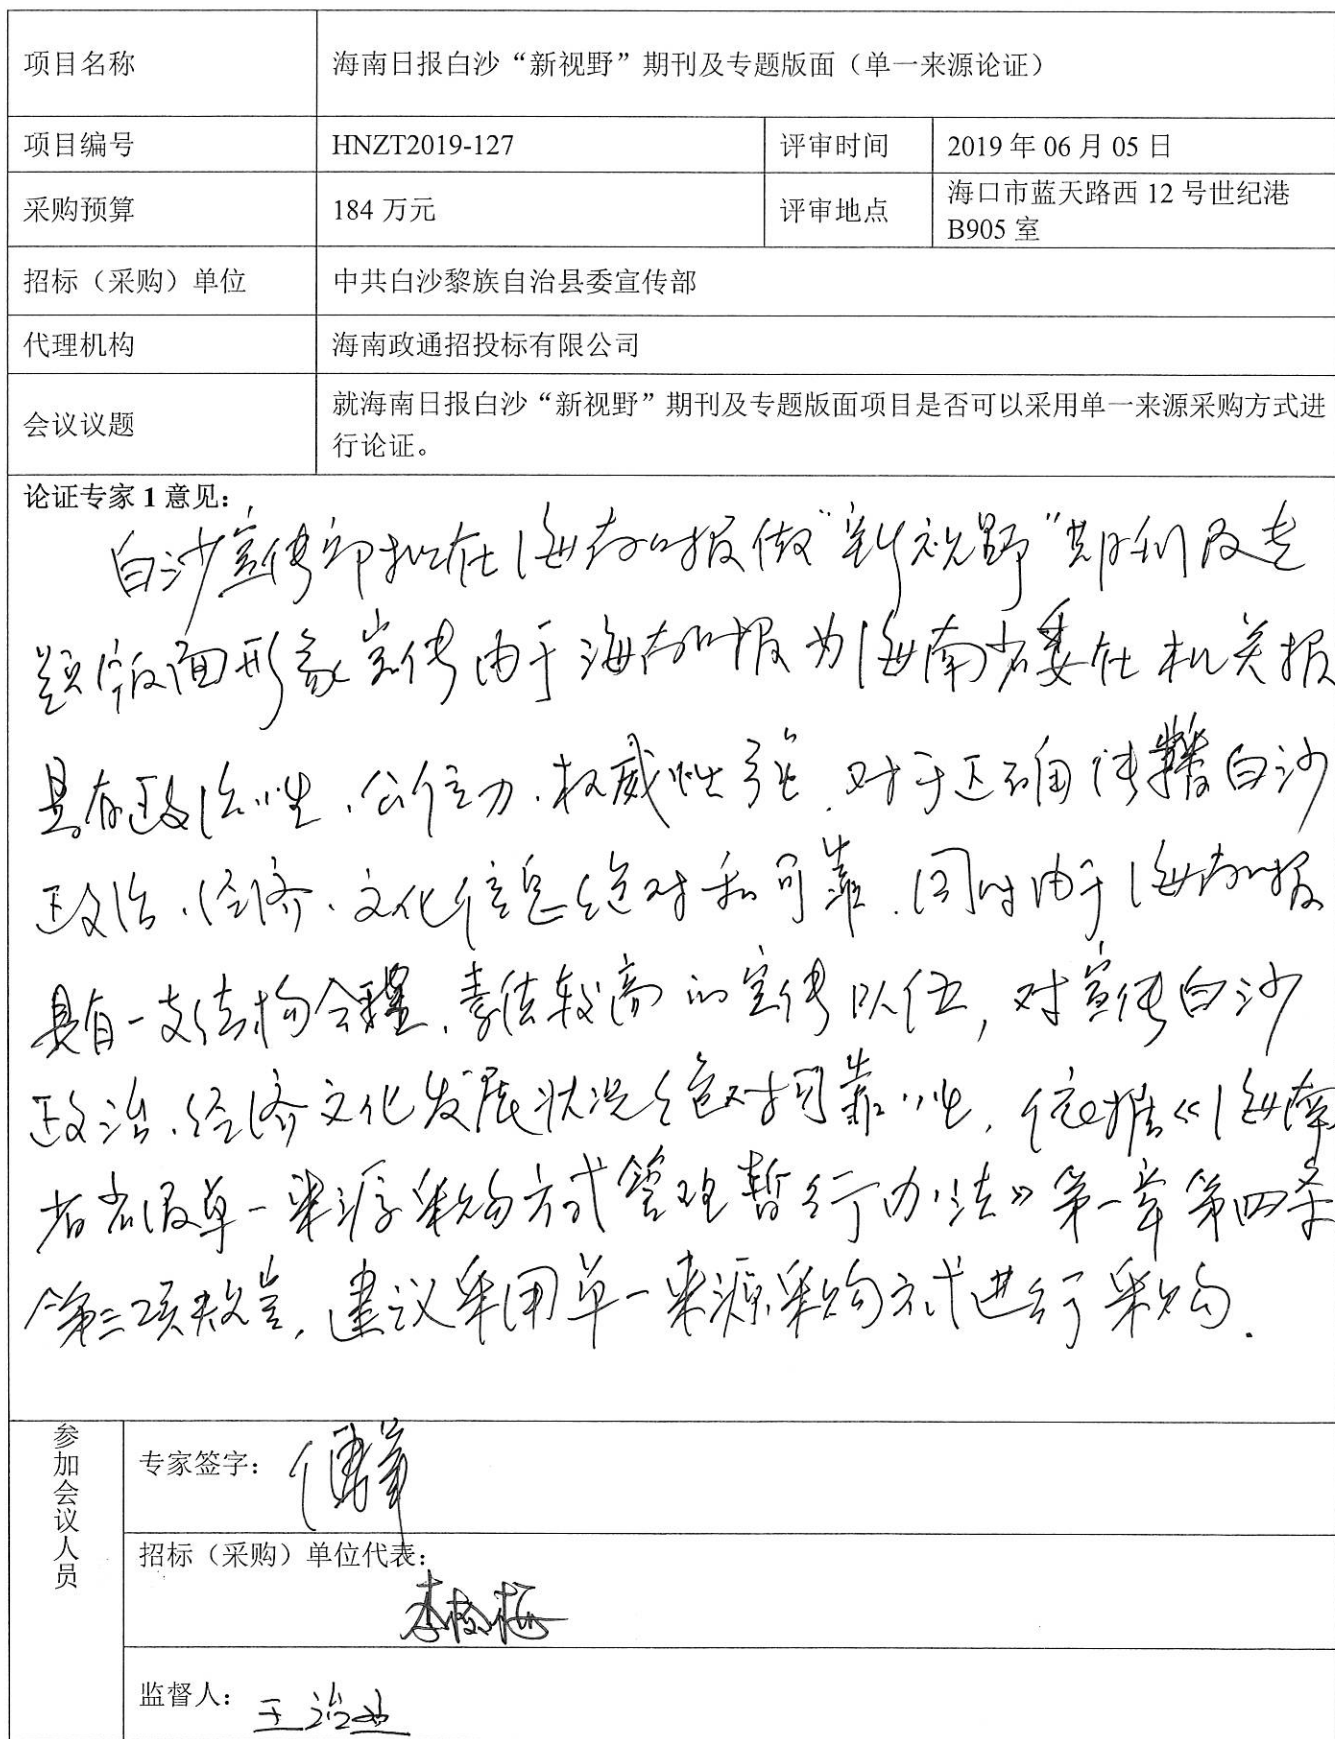 项目名称 海南日报白沙“新视野”期刊及专题版面（单一来源论证）
项目编号 HNZT2019-127 评审时间 2019 年 06 月 05 日
采购预算 184 万元 评审地点 海口市蓝天路西 12 号世纪港
B905 室
招标（采购）单位 中共白沙黎族自治县委宣传部
代理机构 海南政通招投标有限公司
会议议题 就海南日报白沙“新视野”期刊及专题版面项目是否可以采用单一来源采购方式进
行论证。
论证专家 1 意见：
白沙宣传部拟在海南日报做“新视野”期刊及专
题版面形象宣传由于海南日报为海南省委 机关报
具有政治性、公信力、权威性强、对于正确传播白沙
政治、经济、文化信息绝对和可靠、同时由于海南日报
具有一支结构合理、素质较高的宣传队伍，对宣传白沙
政治、经济文化发展状况绝对可靠性，依据《海南
省省级单一来源采购方式管理暂行办法》第一章第四条
第三项 ，建议采用单一来源采购方式进行采购.
参加会议人员
专家签字：
招标（采购）单位代表：
监督人：